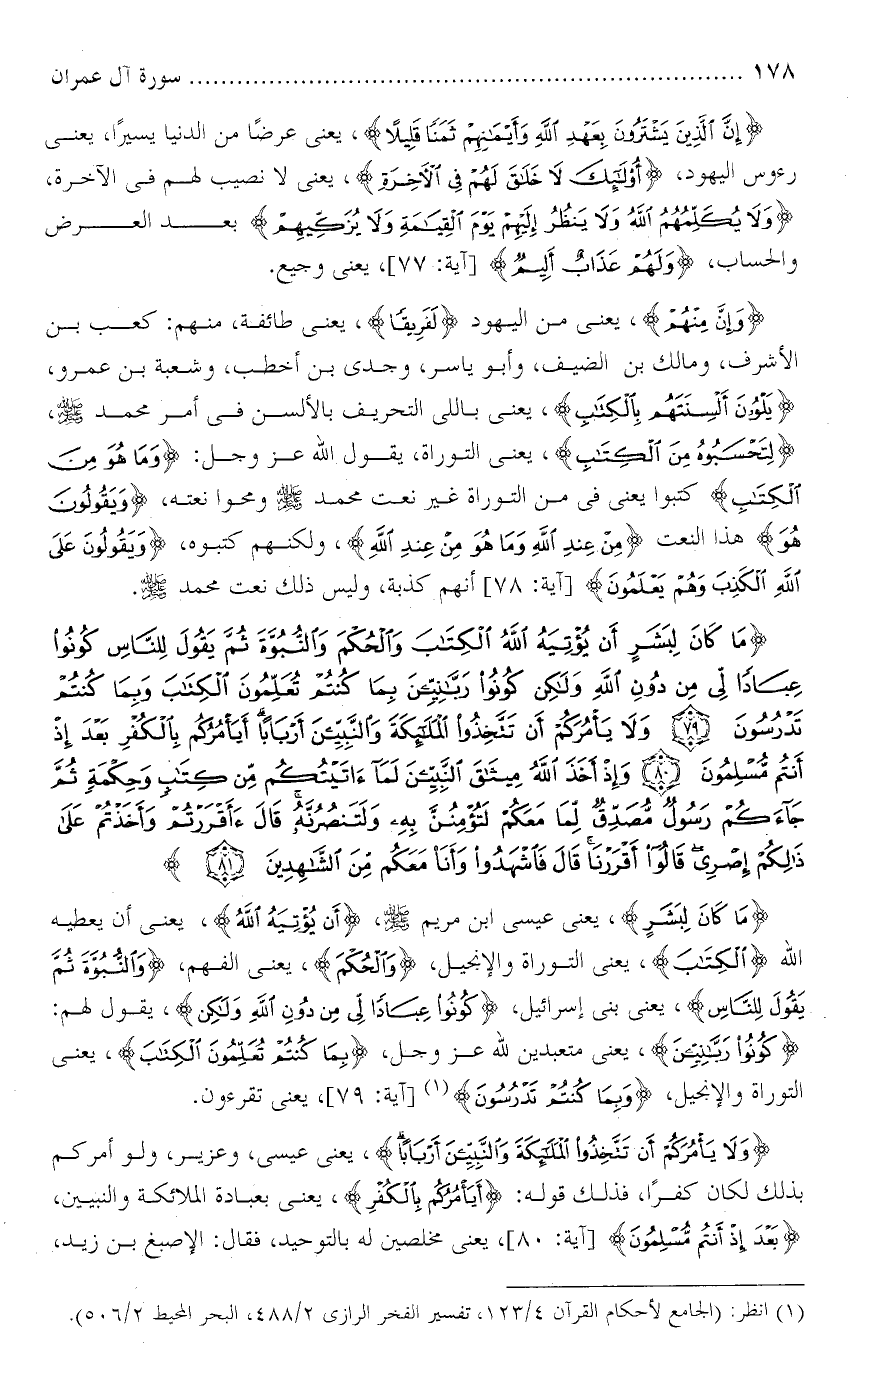 ١٧٨ ........................................................................ سورة آل عمران
﴿إِنَّ ٱلَّذِينَ يَشْتَرُونَ بِعَهْدِ ٱللَّهِ وَأَيْمَٰنِهِمْ ثَمَنًا قَلِيلًا﴾، يعنى عرضًا من الدنيا يسيرًا، يعنى
رءوس اليهود، ﴿أُوْلَٰٓئِكَ لَا خَلَٰقَ لَهُمْ فِى ٱلْأَخِرَةِ﴾، يعنى لا نصيب لهم فى الآخرة،
﴿وَلَا يُكَلِّمُهُمُ ٱللَّهُ وَلَا يَنظُرُ إِلَيْهِمْ يَوْمَ ٱلْقِيَٰمَةِ وَلَا يُزَكِّيهِمْ﴾ بعد العرض
والحساب، ﴿وَلَهُمْ عَذَابٌ أَلِيمٌ﴾ [آية: ٧٧]، يعنى وجيع.
﴿وَإِنَّ مِنْهُمْ﴾، يعنى من اليهود ﴿لَفَرِيقًا﴾، يعنى طائفة، منهم: كعب بن
الأشرف، ومالك بن الضيف، وأبو ياسر، وجدى بن أخطب، وشعبة بن عمرو،
﴿يَلْوُۥنَ أَلْسِنَتَهُم بِٱلْكِتَٰبِ﴾، يعنى باللى التحريف بالألسن فى أمر محمد ﷺ،
﴿لِتَحْسَبُوهُ مِنَ ٱلْكِتَٰبِ﴾، يعنى التوراة، يقول الله عز وجل: ﴿وَمَا هُوَ مِنَ
ٱلْكِتَٰبِ﴾ كتبوا يعنى فى من التوراة غير نعت محمد ﷺ ومحوا نعته، ﴿وَيَقُولُونَ
هُوَ﴾ هذا النعت ﴿مِنْ عِندِ ٱللَّهِ وَمَا هُوَ مِنْ عِندِ ٱللَّهِ﴾، ولكنهم كتبوه، ﴿وَيَقُولُونَ عَلَى
ٱللَّهِ ٱلْكَذِبَ وَهُمْ يَعْلَمُونَ﴾ [آية: ٧٨] أنهم كذبة، وليس ذلك نعت محمد ﷺ.
﴿مَا كَانَ لِبَشَرٍ أَن يُؤْتِيَهُ ٱللَّهُ ٱلْكِتَٰبَ وَٱلْحُكْمَ وَٱلنُّبُوَّةَ ثُمَّ يَقُولَ لِلنَّاسِ كُونُوا۟
عِبَادًا لِّى مِن دُونِ ٱللَّهِ وَلَٰكِن كُونُوا۟ رَبَّٰنِيِّۦنَ بِمَا كُنتُمْ تُعَلِّمُونَ ٱلْكِتَٰبَ وَبِمَا كُنتُمْ
تَدْرُسُونَ ٧٩ وَلَا يَأْمُرَكُمْ أَن تَتَّخِذُوا۟ ٱلْمَلَٰٓئِكَةَ وَٱلنَّبِيِّۦنَ أَرْبَابًا ۗ أَيَأْمُرُكُم بِٱلْكُفْرِ بَعْدَ إِذْ
أَنتُم مُّسْلِمُونَ ٨٠ وَإِذْ أَخَذَ ٱللَّهُ مِيثَٰقَ ٱلنَّبِيِّۦنَ لَمَآ ءَاتَيْتُكُم مِّن كِتَٰبٍ وَحِكْمَةٍ ثُمَّ
جَآءَكُمْ رَسُولٌ مُّصَدِّقٌ لِّمَا مَعَكُمْ لَتُؤْمِنُنَّ بِهِۦ وَلَتَنصُرُنَّهُۥ ۚ قَالَ ءَأَقْرَرْتُمْ وَأَخَذْتُمْ عَلَىٰ
ذَٰلِكُمْ إِصْرِى ۖ قَالُوٓا۟ أَقْرَرْنَا ۚ قَالَ فَٱشْهَدُوا۟ وَأَنَا۠ مَعَكُم مِّنَ ٱلشَّٰهِدِينَ ٨١ ﴾
﴿مَا كَانَ لِبَشَرٍ﴾، يعنى عيسى ابن مريم ﷺ، ﴿أَن يُؤْتِيَهُ ٱللَّهُ﴾، يعنى أن يعطيه
الله ﴿ٱلْكِتَٰبَ﴾، يعنى التوراة والإنجيل، ﴿وَٱلْحُكْمَ﴾، يعنى الفهم، ﴿وَٱلنُّبُوَّةَ ثُمَّ
يَقُولَ لِلنَّاسِ﴾، يعنى بنى إسرائيل، ﴿كُونُوا۟ عِبَادًا لِّى مِن دُونِ ٱللَّهِ وَلَٰكِن﴾، يقول لهم:
﴿كُونُوا۟ رَبَّٰنِيِّۦنَ﴾، يعنى متعبدين لله عز وجل، ﴿بِمَا كُنتُمْ تُعَلِّمُونَ ٱلْكِتَٰبَ﴾، يعنى
التوراة والإنجيل، ﴿وَبِمَا كُنتُمْ تَدْرُسُونَ﴾(١) [آية: ٧٩]، يعنى تقرءون.
﴿وَلَا يَأْمُرَكُمْ أَن تَتَّخِذُوا۟ ٱلْمَلَٰٓئِكَةَ وَٱلنَّبِيِّۦنَ أَرْبَابًا ۗ﴾، يعنى عيسى، وعزير، ولو أمركم
بذلك لكان كفرًا، فذلك قوله: ﴿أَيَأْمُرُكُم بِٱلْكُفْرِ﴾، يعنى بعبادة الملائكة والنبيين،
﴿بَعْدَ إِذْ أَنتُم مُّسْلِمُونَ﴾ [آية: ٨٠]، يعنى مخلصين له بالتوحيد، فقال: الإصبغ بن زيد،
(١) انظر: (الجامع لأحكام القرآن ١٢٣/٤، تفسير الفخر الرازى ٤٨٨/٢، البحر المحيط ٥٠٦/٢).